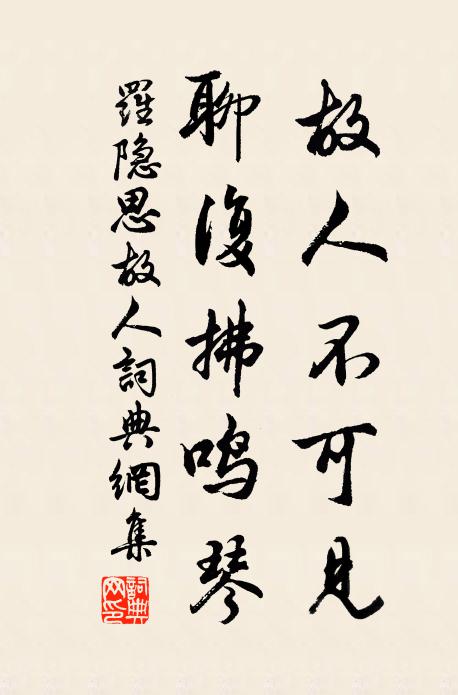 故人不可見
聊復拂鸣琴
羅隐思故人詞典網集
詞典网印